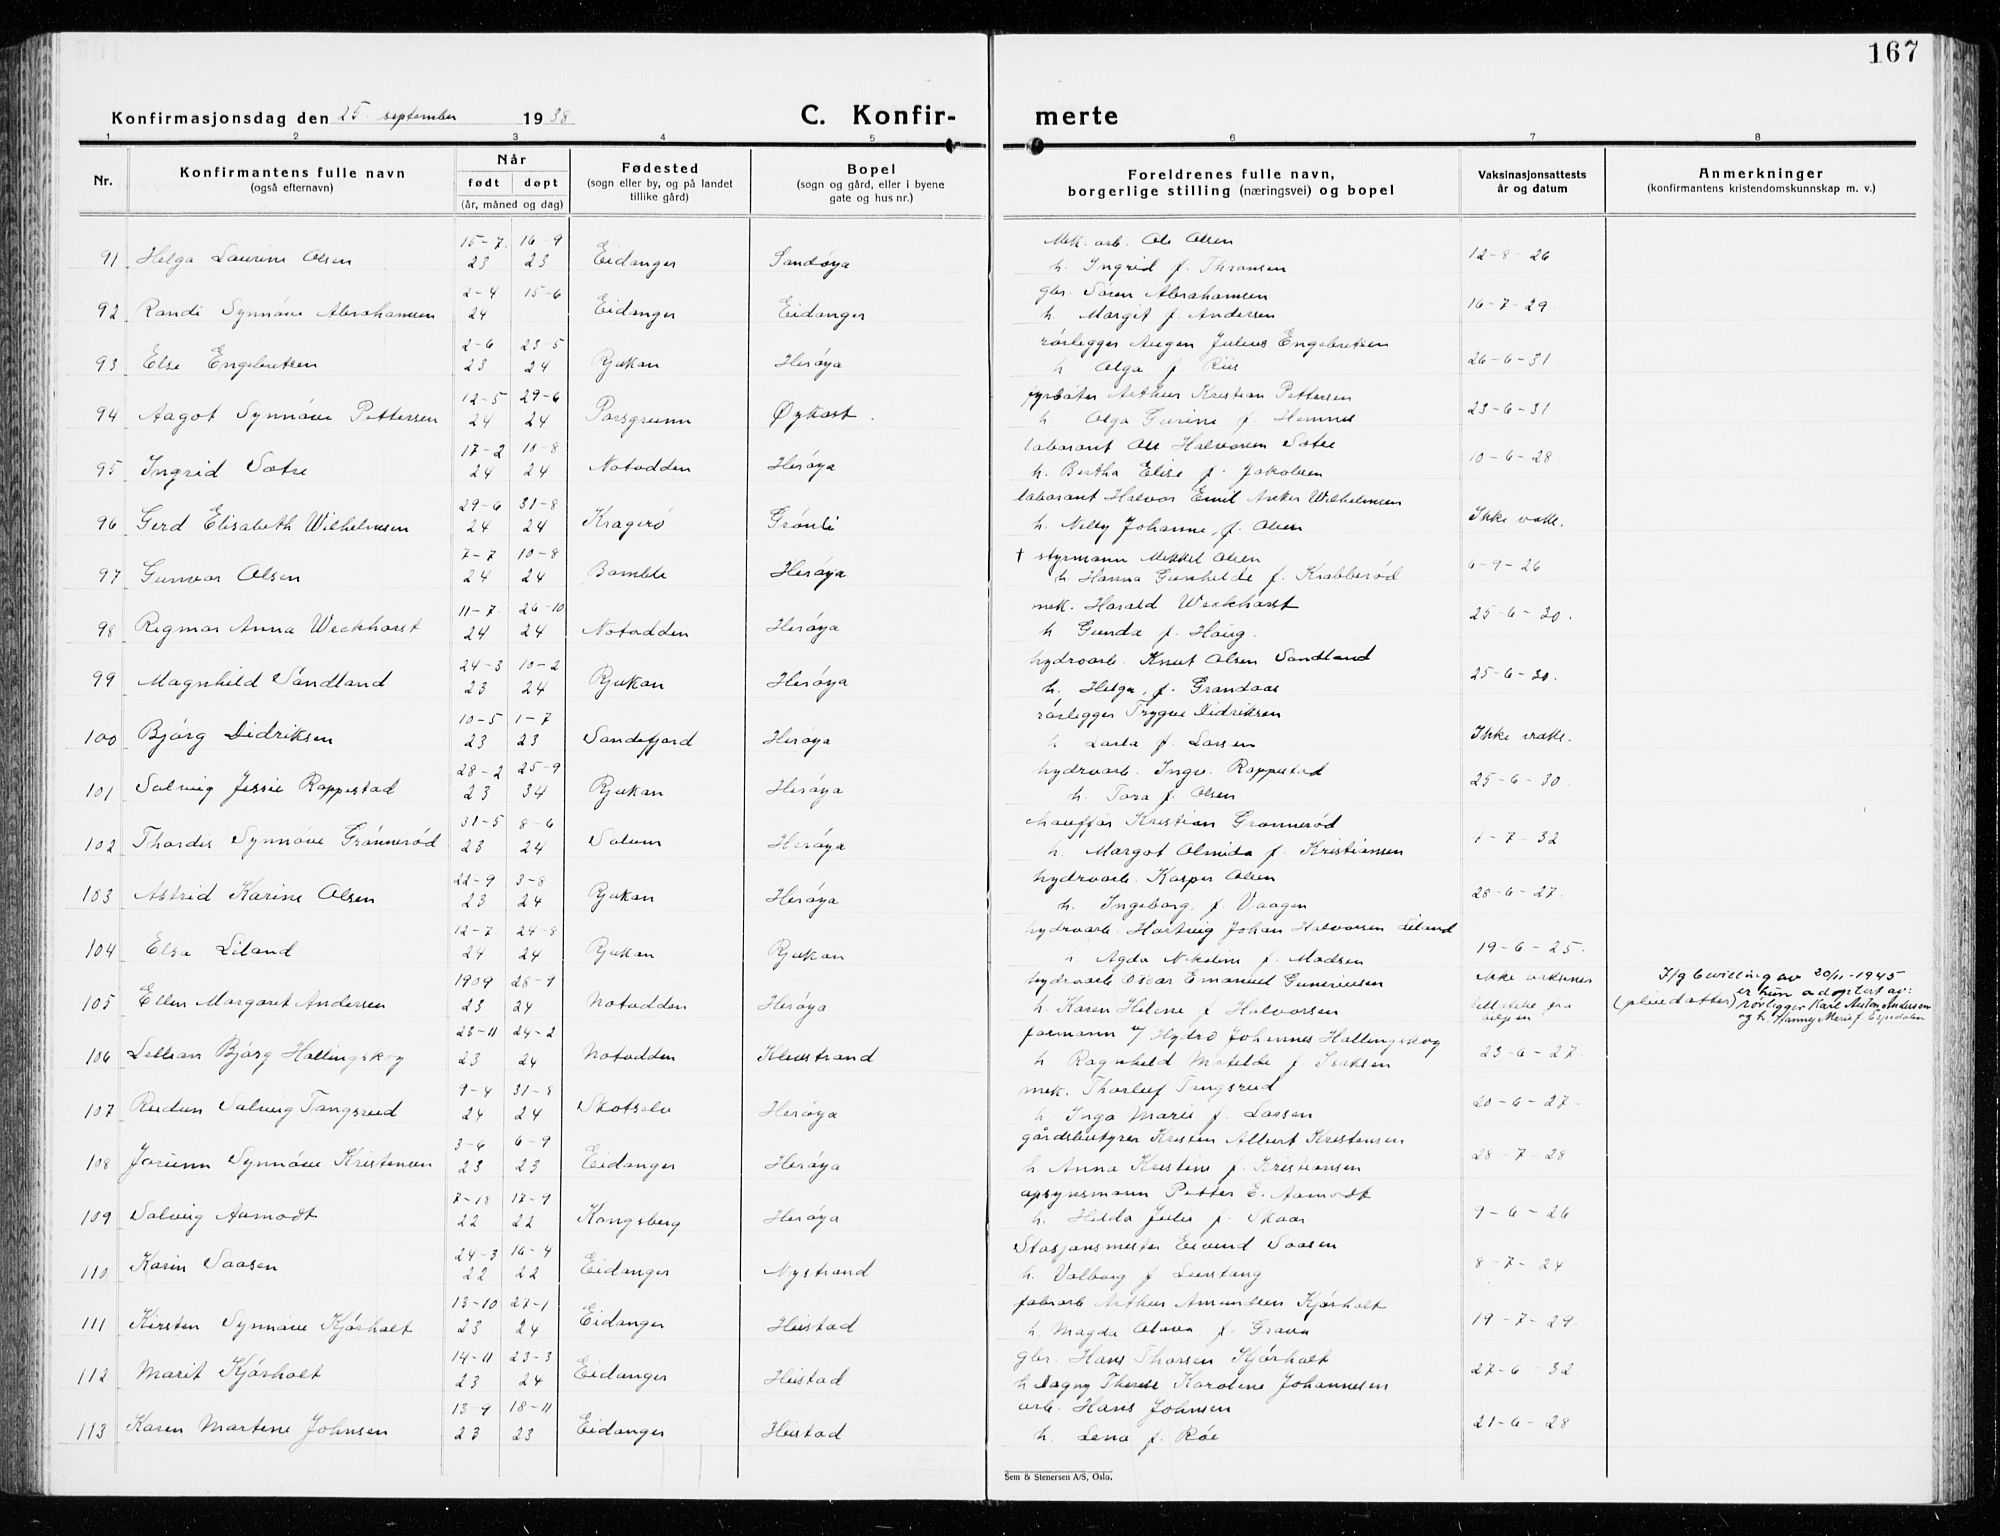 167
Konfirmasjonsdag den 25. september 1938 C. Konfirmerte
1 2 3 4 5 6 7 8
Nr. Konfirmantens fulle navn (også efternavn) Når født døpt (år, måned og dag) Fødested (sogn eller by, og på landet tillike gård) Bopel (sogn og gård, eller i byene gate og hus nr.) Foreldrenes fulle navn, borgerlige stilling (næringsvei) og bopel Vaksinasjonsattests år og datum Anmerkninger (konfirmantens kristendomskunnskap m. v.)
15-7. 16-9 Mek. arb. Ole Olsen
91 Helga Laurine Olsen 23 23 Eidanger Sandøya h. Ingrid f. Thronsen 12-8-26
2-4 15-6 gbr. Søren Abrahamsen
92 Randi Synnøve Abrahamsen 24 Eidanger Eidanger h. Margit f. Andersen 16-7-29.
2-6 23-5 rørlegger Augen Julius Engebretsen
93 Else Engebretsen 23 24 Rjukan Herøya h Olga f Riis 26-6-31
12-5 29-6 fyrbøter Arthur Kristian Pettersen
94 Aagot Synnøve Pettersen 24 24 Porsgrunn Øykast. h Olga Gurine f. Hemnes 23-6-31.
17-2 10-8 laborant Ole Halvorsen Sotre
95 Ingrid Sotre 24 24 Notodden Herøya h. Bertha Elise f. Jakobsen 10-6-28.
29-6 31-8 laborant Halvor Emil Anker Wilhelmsen
96 Gerd Elisabeth Wilhelmsen 24 24 Kragerø Grønli h. Nelly Johanne, f. Olsen Ikke vakk.
7-7 10-8 † styrmann Mikkel Olsen
97 Gunvor Olsen 24 24 Bamble Herøya h. Hanna Gunhilde f. Krabberød 6-9-26
11-7. 26-10 mek. Harald Weckhorst
98 Regmor Anna Weckhorst 24 24 Notodden Herøya h Gunda f. Haug. 25-6-30.
24-3 10-2 hydroarb. Knut Olsen Sandland
99 Magnhild Sandland 23 24 Rjukan Herøya h. Helga, f. Grandaas 25-6-30.
10-5 1-7 rørlegger Trygve Didriksen
100 Bjørg Didriksen 23 23 Sandefjord Herøya h Larla f. Larsen Ikke vakk.
28-2 25-9 hydroarb. Ingv. Roppestad
101 Solveig Jessie Roppestad 23 34 Rjukan Herøya h. Tora f. Olsen 25-6-30.
31-5 8-6 chauffør Kristian Grønnerød
102 Thordis Synnøve Grønnerød 23 24 Solum Herøya h. Margot Almida f. Kristiansen 1-7-32
22-9 3-8 hydroarb. Kasper Olsen
103 Astrid Karine Olsen 23 24 Rjukan Herøya h. Ingeborg, f. Vaagen 28-6-27.
12-7. 24-8 hydroarb. Hartvig Johan Halvorsen Liland
104 Elsa Liland 24 24 Rjukan Rjukan h. Agda Nikoline f. Madsen 19-6-25.
1909 28-9 hydroarb Oscar Emanuel Gunerinsen Ikke vaksinert I/g bevilling av 20/11-1945
105 Ellen Margaret Andersen 23 24 Notodden Herøya h Karen Helene f Halvorsen (pleiedatter) er hun adoptert av: rørlegger Karl Anton Andersen
og h. Hanny Marie f. Espedalen
23-11 24-2 formann v/ Hydro Johannes Hallingskog
106 Lillian Bjørg Hallingskog 23 24 Notodden Klevstrand h Ragnhild Matilde f Isaksen 23-6-27.
9-4 31-8 mek. Thorleif Tangsrud
107 Reidun Solveig Tangsrud 24 24 Skotselv Herøya h. Inga Marie f. Larsen 20-6-27.
3-6 6-9 gårdsbestyrer Kristen Albert Kristensen
108 Jorunn Synnøve Kristensen 23 23 Eidanger Herøya h Anna Kristine f. Kristiansen 28-7-28
7-18 17-9 opsynsmann Petter E. Aamodt
109 Solveig Aamodt 22 22 Kongsberg Herøya h. Hilda Julie f. Skaar 9-6-26
24-3 16-4 Stasjonsmester Eivind Saasen
110 Karin Saasen 22 22 Eidanger Nystrand h. Valborg f Leirstang 8-7-24
13-10 27-1 fabrarb Arthur Amundsen Kjørholt
111 Kirsten Synnøve Kjørholt 23 24 Eidanger Heistad h. Magda Olava, f. Grava 19-7-29.
14-11 23-3 gbr. Hans Thorsen Kjørholt
112 Marit Kjørholt 23 24 Eidanger Heistad h Dagny Therese Karoline Johannesen 27-6-32
13-9 18-11 arb. Hans Johnsen
113 Karen Martine Johnsen 23 23 Eidanger Heistad h. Lena f. Røe 21-6-28
Sem & Stenersen A/S, Oslo.